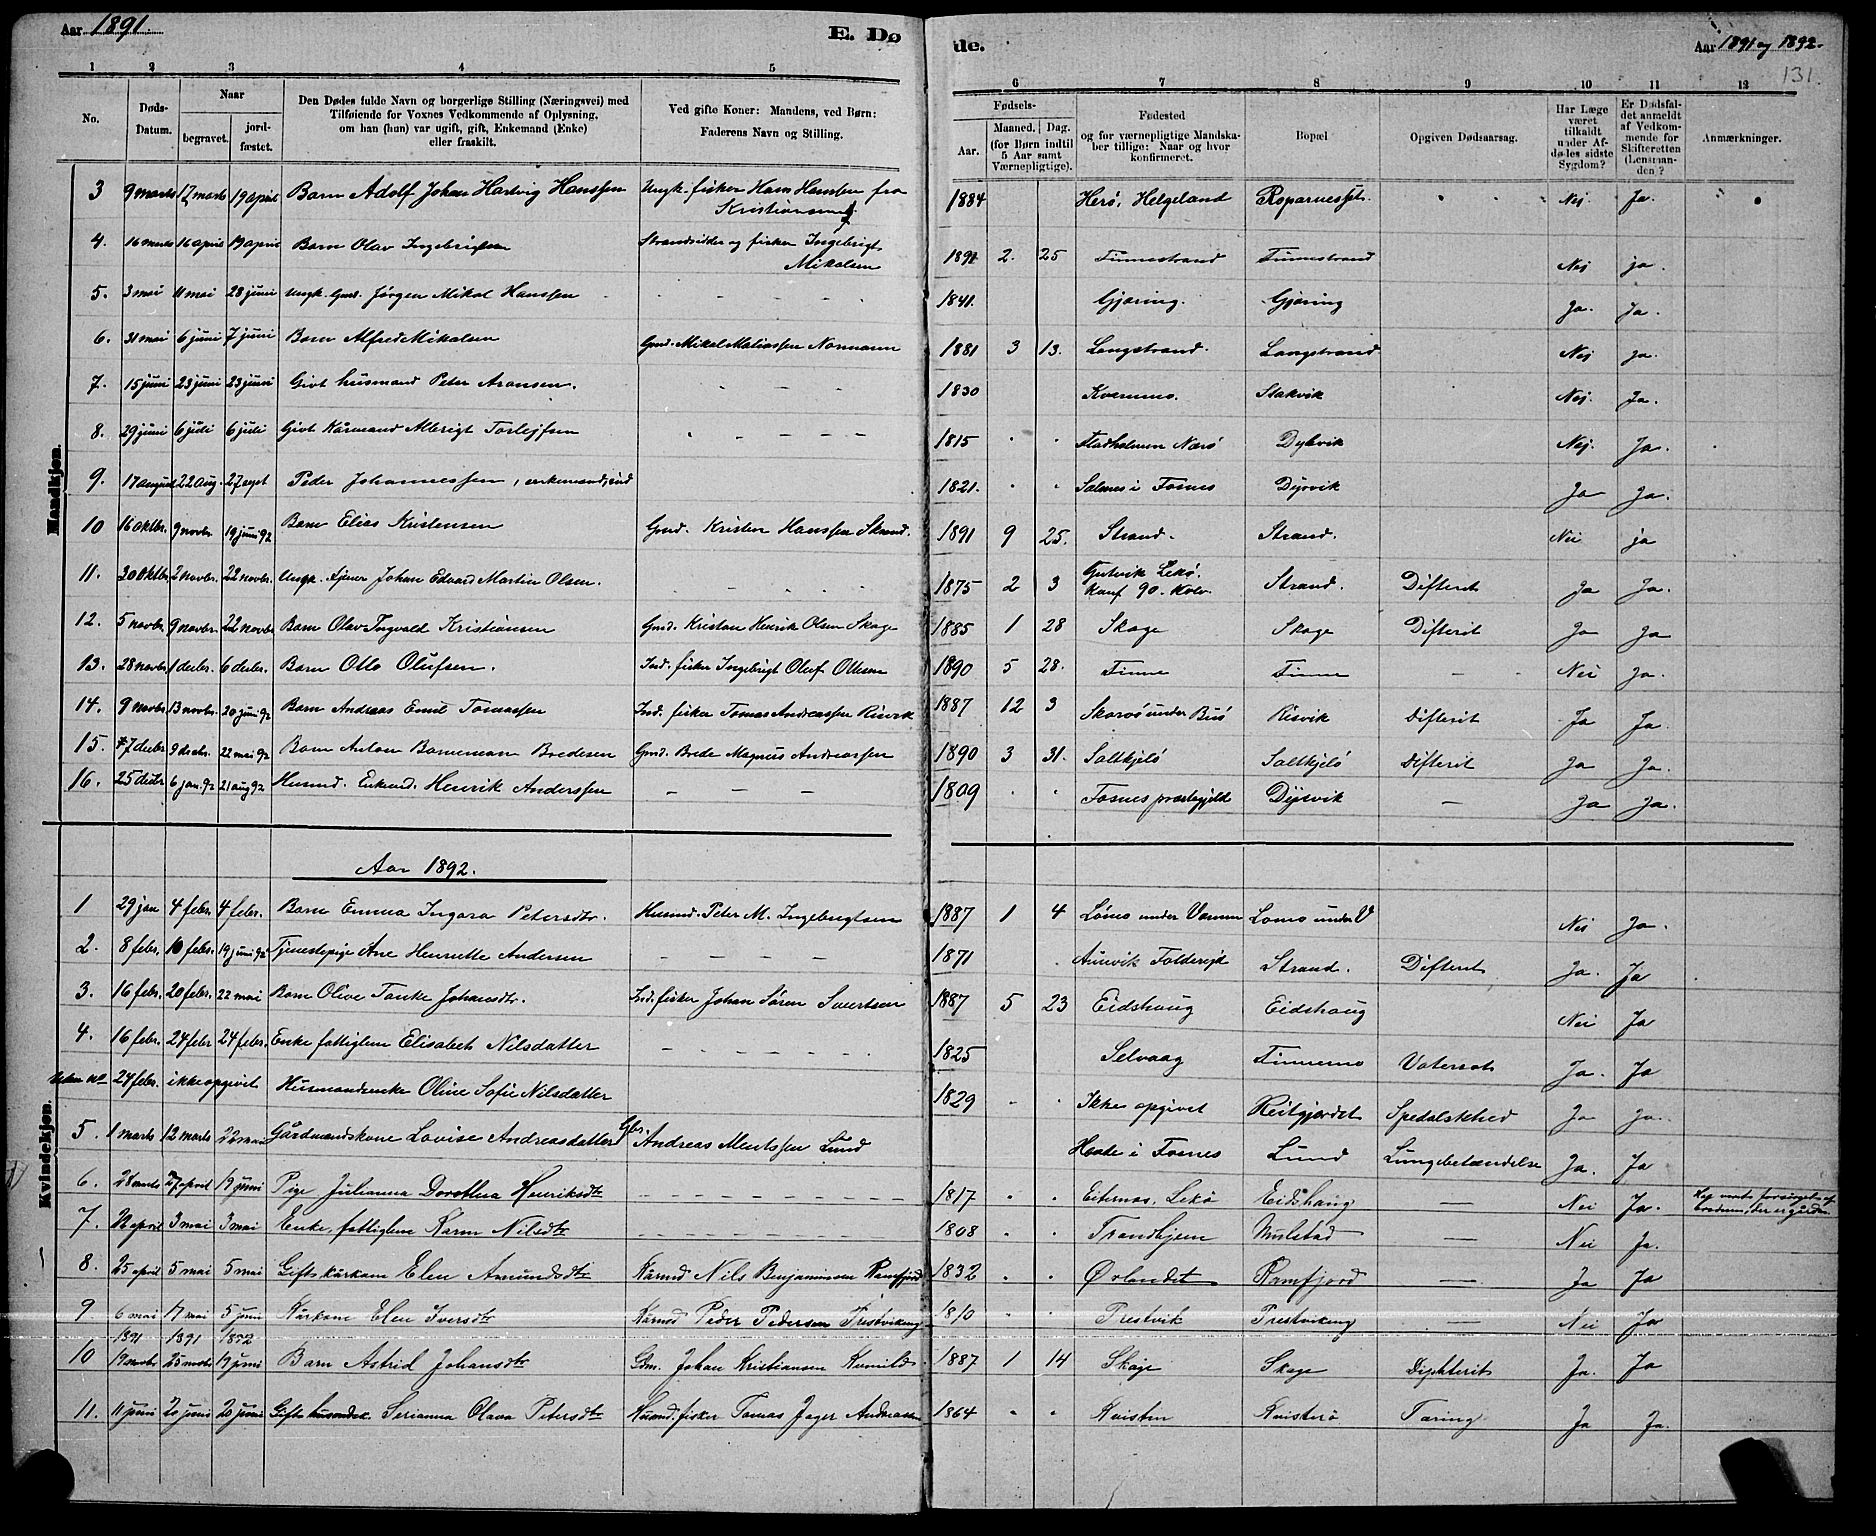 Aar 1891.
E. Dø
de.
Aar 1891 og 1892.
131.
1 2 3 4 5
6 7 8 9 10 11 12
No.
Døds-Datum.
Naar
begravet.
jord-fæstet.
Den Dødes fulde Navn og borgerlige Stilling (Næringsvei) med
Tilføiende for Voxnes Vedkommende af Oplysning,
om han (hun) var ugift, gift, Enkemand (Enke)
eller fraskilt.
Ved gifte Koner: Mandens, ved Børn:
Faderens Navn og Stilling.
Fødsels-
Aar.
Maaned.
Dag.
(for Børn indtil
5 Aar samt
Værnepligtige).
Fødested
og for værnepligtige Mandska-
ber tillige: Naar og hvor
konfirmeret.
Bopæl
Opgiven Dødsaarsag.
Har Læge
været
tilkaldt
under Af-
dødes sidste
Sygdom?
Er Dødsfal-
det anmeldt
af Vedkom-
mende for
Skifteretten
(Lensman-
den?
Anmærkninger.
Mandkjøn.
3 9 marts 17 marts 19 april Barn Adolf Johan Hartvig Hanssen Ungk. fisker Hans Hansen fra 1884 Herø, Helgeland Nej. Ja.
Kristiansund
4. 16 marts 16 april 19 april Barn Olav Ingebrigtsen Strandsidder og fisker Ingebrigt 1891 2. 25 Finnestrand Finnestrand Nej ja.
Mikalsen
5. 3 mai 11 mai 28 juni Ungk. Gmd. Jørgen Mikal Hanssen 1841. Gjøring. Gjøring Ja. Ja.
6. 31 mai 6 juni 7 juni Barn Alfred Mikalsen Gmd. Mikal Matiassen Normann 1881 3 13. Langstrand. Langstrand Nej ja.
7. 15 juni 23 juni 23 juni Givt husmand Peter Aronsen. 1830 Kvernmo. Stakvik Nej. Ja.
8. 29 juni 6 juli 6 juli Givt Kårmand Albrigt Torlejfsen 1815 Nærø Dybvik Nej. Ja.
9. 17 august 22 aug. 27 sept Peder Johannessen, enkemand, ind 1821. Salsnes i Fosnes Dyrvik Ja Ja.
10 16 oktbr. 9 novbr. 19 juni 92 Barn Elias Kristensen Gmd. Kristen Hanssen Strand. 1891 9 25. Strand. Strand. Nei ja
11. 20 oktbr. 2 novbr. 22 novbr. Ungk. tjener Johan Edvard Martin Olsen. 1875 2 3 Gutvik Lekø. Strand. Difterit Ja Ja.
Konf 90. Kolv.
12. 5 novbr. 9 novbr. 22 novbr. Barn Olav Ingvald Kristiansen Gmd. Kristian Henrik Olsen Skage 1885 1 28 Skage Skage Difterit Ja Ja
13. 28 novbr. 1 decbr. 6 decbr. Barn Otto Olufsen. Ind. fisker Ingebrigt Oluf Ottesen 1890 5 28. Finne Finne Nei Ja.
14. 9 novbr. 13 novbr. 20 juni 92 Barn Andreas Emil Tomassen Ind. fisker Tomas Andreassen Risvik 1887 12 3 Risvik Difterit Ja Ja.
15. 7 decbr 9 decbr. 22 mai 92 Barn Anton Bornemann Bredesen Gmd. Brede Magnus Andreassen 1890 3 31. Saltkjelø Saltkjelø Difterit Ja Ja.
16. 25 decbr 6 jan. 92 21 aug 92 Husmd. Enkemd. Henrik Anderssen 1809 Fosnes præstegjeld Dyrvik Ja Ja.
Aar 1892.
Kvindekjøn.
1 29 jan 4 febr. 4 febr. Barn Emma Ingara Petersdtr. Husmd. Peter M. Ingebrigtsen 1887 1 4 Lømo under Vemm Lomo under V Nei Ja.
2. 8 febr. 10 febr. 19 juni 92 Tjenestepige Ane Henriette Andersen 1871 Folderejd Strand. Difterit Ja. Ja
3. 16 febr. 20 febr. 22 mai Barn Olive Tanke Johansdtr. Ind. fisker Johan Søren Sivertsen 1887 5 23 Eidshaug Eidshaug Nei Ja
4. 16 febr. 24 febr 24 febr. Enke fattiglem Elisabet Nilsdatter 1825 Selvaag Finnemo Vatersot Ja. Ja
Uden No 24 febr. ikke opgivet Husmandsenke Oline Sofie Nilsdatter 1829 Ikke opgivet Reitgjerdet Spedalskhed Ja Ja.
5. 1 marts 12 marts 22 mai Gårdmandskone Lovise Andreasdatter Gbr. Andreas Mentssen Lund i Fosnes Lund Lungebetændelse Ja. Ja
6. 28 marts 27 april 19 juni Pige Julianna Dorothea Henriksdtr 1817 Eiternes, Lekø Eidshaug Nei Ja.
7. 26 april 3 mai 3 mai Enke, fattiglem Karen Nilsdtr 1808 Trondhjem Mulstad Nei Ja.
8. 25 april 5 mai 5 mai Gift kårkone Elen Amundsdtr Kårmd Nils Benjaminsen Ramfjord 1832 Ørlandet Ramfjord Ja Ja
9 6 mai 17 mai 5 juni Kårkone Elen Iversdtr Kårmd Peder Pedersen Trestviking 1810 Trestvik Trestviking Nei Ja
1891 1891 1892
10 19 novbr 25 novbr 19 juni Barn Astrid Johansdtr Gbm. Johan Kristiansen 1887 1 14 Skage Skage Diphterit Ja. Ja
11. 11 juni 20 juni 20 juni Gift husmdsk. Serianna Olava Petersdtr Husmd. fisker Tomas Jager Andreassen 1864 Kvisten Kvisterø Tæring Ja Ja.